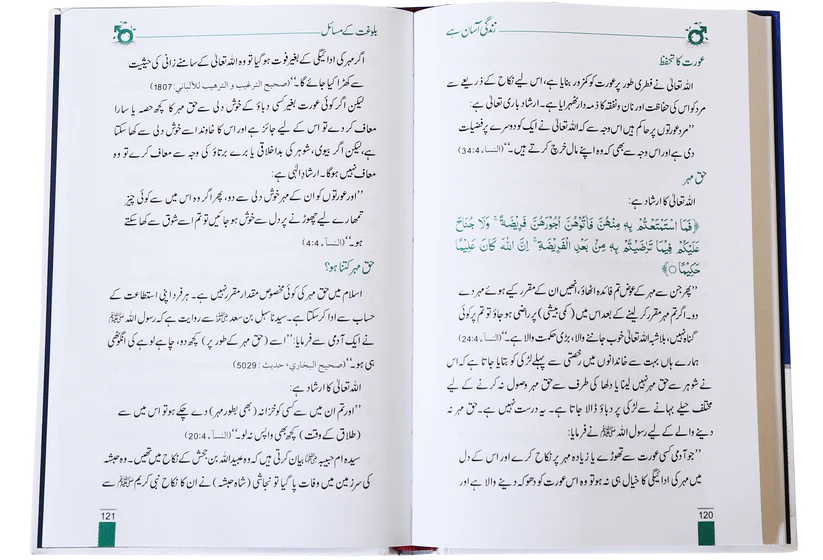 زندگی آسان ہے
عورت کا تحفظ
اللہ تعالیٰ نے فطری طور پر عورت کو کمزور بنایا ہے، اس لیے نکاح کے ذریعے سے
مرد کو اس کی حفاظت اور نان و نفقہ کا ذمہ دار ٹھہرایا ہے۔ ارشاد باری تعالیٰ ہے:
’’مرد عورتوں پر حاکم ہیں اس وجہ سے کہ اللہ تعالیٰ نے ایک کو دوسرے پر فضیلت
دی ہے اور اس وجہ سے بھی کہ وہ اپنے مال خرچ کرتے ہیں۔‘‘ (النساء 34:4)
حق مہر
اللہ تعالیٰ کا ارشاد ہے:
﴿فَمَا اسْتَمْتَعْتُمْ بِهِ مِنْهُنَّ فَآتُوْهُنَّ اُجُوْرَهُنَّ فَرِيْضَةً ۚ وَلَا جُنَاحَ
عَلَيْكُمْ فِيْمَا تَرٰضَيْتُمْ بِهِ مِنْۢ بَعْدِ الْفَرِيْضَةِ ۚ اِنَّ اللّٰهَ كَانَ عَلِيْمًا
حَكِيْمًا ○﴾
’’پھر جن سے مہر کے عوض تم فائدہ اٹھاؤ، انھیں ان کے مقرر کیے ہوئے مہر دے
دو۔ اگر تم مہر مقرر کر لینے کے بعد اس میں (کمی بیشی) پر راضی ہو جاؤ تو تم پر کوئی
گناہ نہیں، بلاشبہ اللہ تعالیٰ خوب جاننے والا، بڑی حکمت والا ہے۔‘‘ (النساء 24:4)
ہمارے ہاں بہت سے خاندانوں میں رخصتی سے پہلے لڑکی کو بتایا جاتا ہے کہ اس
نے شوہر سے حق مہر نہیں لینا یا دلھا کی طرف سے حق مہر وصول نہ کرنے کے لیے
مختلف حیلے بہانے سے لڑکی پر دباؤ ڈالا جاتا ہے۔ یہ درست نہیں ہے۔ حق مہر نہ
دینے والے کے لیے رسول اللہ ﷺ نے فرمایا:
’’جو آدمی کسی عورت سے تھوڑے یا زیادہ مہر پر نکاح کرے اور اس کے دل
میں مہر کی ادائیگی کا خیال ہی نہ ہو تو وہ اس عورت کو دھوکہ دینے والا ہے اور
120
بلوغت کے مسائل
اگر مہر کی ادائیگی کے بغیر فوت ہو گیا تو وہ اللہ تعالیٰ کے سامنے زانی کی حیثیت
سے کھڑا کیا جائے گا۔‘‘ (صحيح الترغيب و الترهيب للألباني: 1807)
لیکن اگر کوئی عورت بغیر کسی دباؤ کے خوش دلی سے حق مہر کا کچھ حصہ یا سارا
معاف کر دے تو اس کے لیے جائز ہے اور اس کا خاوند اسے خوش دلی سے کھا سکتا
ہے، لیکن اگر بیوی، شوہر کی بداخلاقی یا برے برتاؤ کی وجہ سے معاف کرے تو وہ
معاف نہیں ہوگا۔ ارشاد الٰہی ہے:
’’اور عورتوں کو ان کے مہر خوش دلی سے دو، پھر اگر وہ اس میں سے کوئی چیز
تمھارے لیے چھوڑنے پر دل سے خوش ہو جائیں تو تم اسے شوق سے کھا سکتے
ہو۔‘‘ (النساء 4:4)
حق مہر کتنا ہو؟
اسلام میں حق مہر کی کوئی مخصوص مقدار مقرر نہیں ہے۔ ہر فرد اپنی استطاعت کے
حساب سے ادا کر سکتا ہے۔ سیدنا سہل بن سعد ؓ سے روایت ہے کہ رسول اللہ ﷺ
نے ایک آدمی سے فرمایا: ’’اسے (حق مہر کے طور پر) کچھ دو، چاہے لوہے کی انگوٹھی
ہی ہو۔‘‘ (صحيح البخاري، حديث: 5029)
اللہ تعالیٰ کا ارشاد ہے:
’’اور تم ان میں سے کسی کو خزانہ (بھی بطور مہر) دے چکے ہو تو اس میں سے
(طلاق کے وقت) کچھ بھی واپس نہ لو۔‘‘ (النساء 20:4)
سیدہ ام حبیبہ ؓ بیان کرتی ہیں کہ وہ عبیداللہ بن جحش کے نکاح میں تھیں۔ وہ حبشہ
کی سرزمین میں وفات پا گیا تو نجاشی (شاہ حبشہ) نے ان کا نکاح نبی کریم ﷺ سے
121